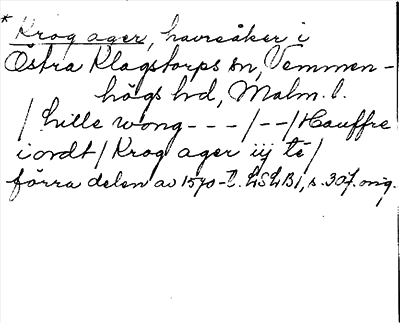 * Krog ager, havreåker i
Östra Klagstorps sn, Vemmen-
högs hd, Malm. l.
/ Lille wong - - - / - - / Hauffre
iordt / Krog ager iij te /
förra delen av 1570-t. LSLB1, s. 307. orig.